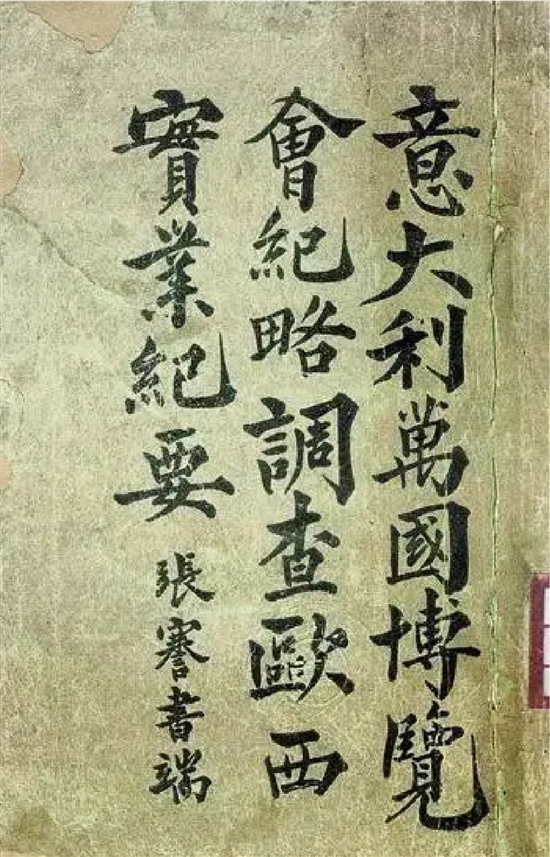 意大利萬國博覽
會紀略調查歐西
實業紀要
張謇書端